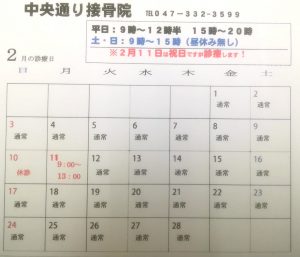 中央通り接骨院 ℡047-332-3599
平日：9時～12時半 15時～20時
土・日：9時～15時（昼休み無し）
※２月１１日は祝日ですが診療します！
２月の診療日
日 月 火 水 木 金 土
1 2
通常 通常
3 4 5 6 7 8 9
通常 通常 通常 通常 通常 通常 通常
10 11 12 13 14 15 16
休診 9：00～ 通常 通常 通常 通常 通常
13：00
17 18 19 20 21 22 23
通常 通常 通常 通常 通常 通常 通常
24 25 26 27 28
通常 通常 通常 通常 通常